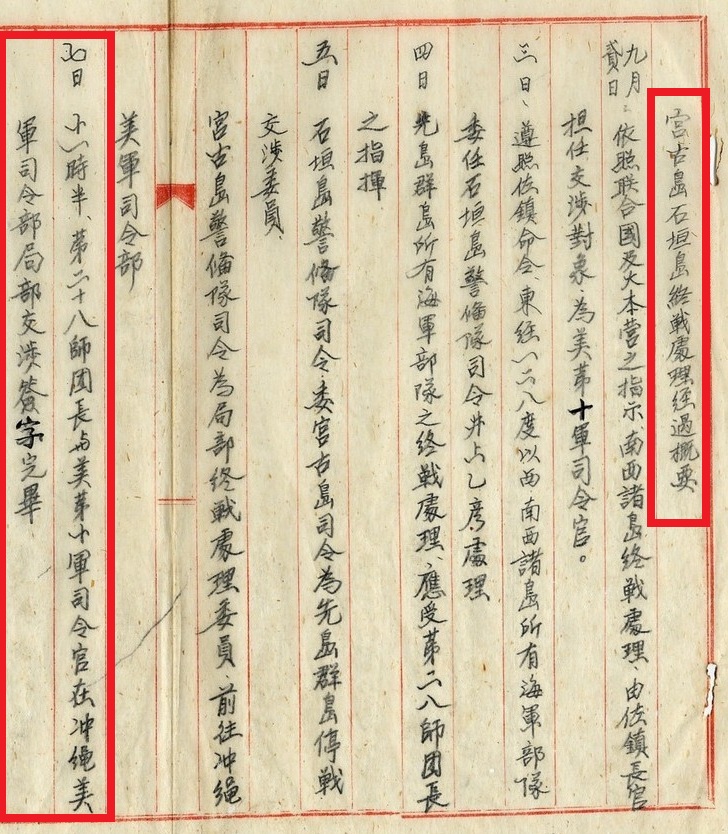 宮古島石垣島終戰處理經過概要
九月貳日、依照联合國及大本营之指示南西諸島終戰處理、由佐鎮長官
担任交涉對象為美第十軍司令官。
三日、遵照佐鎮命令、東經一二八度以西南西諸島所有海軍部隊
委任石垣島警備隊司令井上乙彦處理
四日 先島群島所有海軍部隊之終戰處理、應受第二八師团長
之指揮
五日 石垣島警備隊司令、委宮古島司令為先島群島停戰
交涉委員、
宮古島警備隊司令為局部終戰處理委員、前往冲繩
美軍司令部
七日 十一時半、第二十八師团長与美第十軍司令官在冲繩美
軍司令部局部交涉簽字完畢